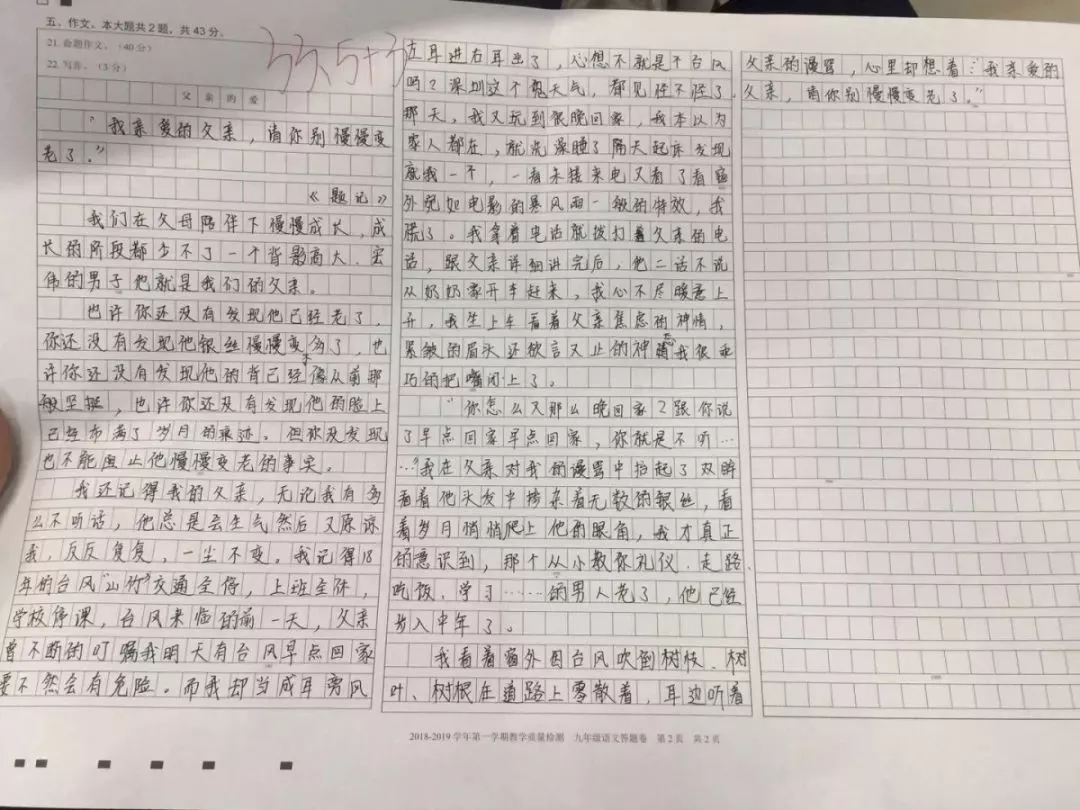 五、作文。本大题共2题，共43分。
21. 命题作文。(40分)
22. 写作。(3分)
33.5+3
父亲的爱
“我亲爱的父亲，请你别慢慢变
老了。”
《题记》
我们在父母陪伴下慢慢成长，成
长的阶段都少不了一个背影高大、宏
伟的男子他就是我们的父亲。
也许你还没有发现他已经老了，
你还没有发现他银丝慢慢变多了，也
许你还没有发现他的背已经不像从前那
般坚挺，也许你还没有发现他的脸上
已经布满了岁月的痕迹。但你没发现
也不能阻止他慢慢变老的事实。
我还记得我的父亲，无记我有多
么不听话，他总是会生气然后又原谅
我，反反复复，一尘不变。我记得18
年的台风“山竹”交通全停，上班全休，
学校停课，台风来临的前一天，父亲
曾不断的叮嘱我明天有台风早点回家
要不然会有危险。而我却当成耳旁风
左耳进右耳出了，心想不就是个台风
吗？深圳这个鬼天气，都见怪不怪了
那天，我又玩到很晚回家，我本以为
家人都在，就洗澡睡了隔天起床发现
就我一个，一看未接来电又看了看窗
外宛如电影的暴风雨一般的特效，我
慌了。我拿着电话就拨打父亲的电
话，跟父亲详细讲完后，他二话不说
从奶奶家开车赶来，我心不尽暖意上
升，我坐上车看着父亲焦虑的神情，
紧皱的眉头还欲言又止的神态我很乖
巧的把嘴闭上了。
“你怎么又那么晚回家？跟你说
了早点回家早点回家，你就是不听…
…”我在父亲对我的谩骂中抬起了双眸
看着他头发中掺杂着无数的银丝，看
着岁月悄悄爬上他的眼角，我才真正
的意识到，那个从小教你礼仪、走路、
吃饭、学习……的男人老了，他已经
步入中年了。
我看着窗外因台风吹倒树枝、树
叶、树根在道路上零散着，耳边听着
父亲的谩骂，心里却想着：“我亲爱的
父亲，请你别慢慢变老了。”
2018-2019 学年第一学期教学质量检测 九年级语文答题卷 第2页 共2页